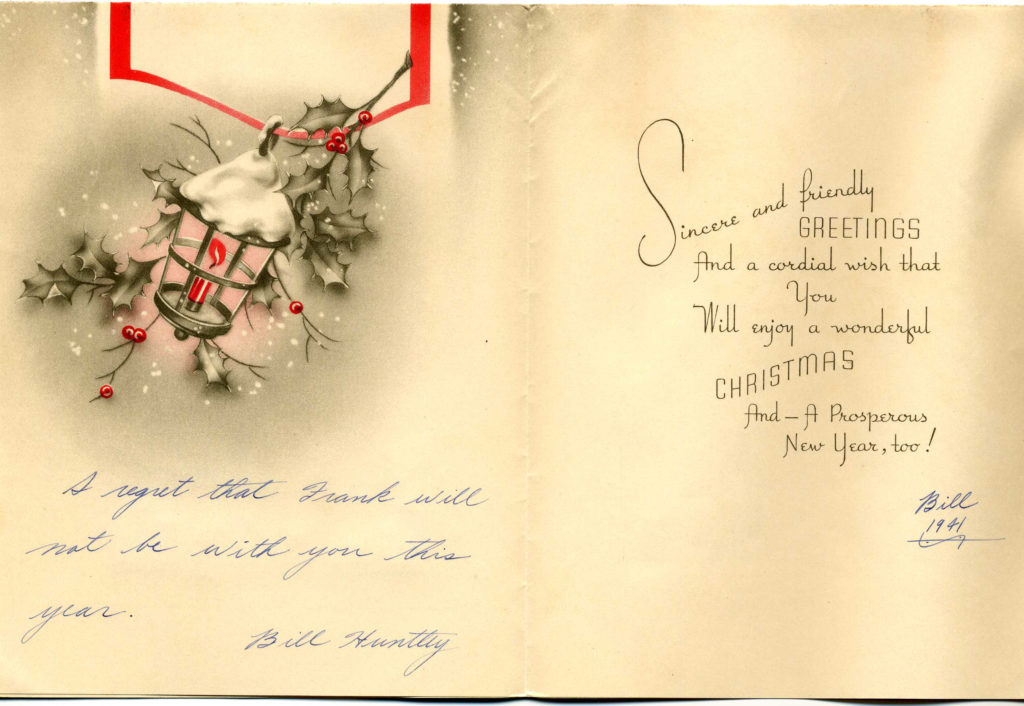 A regret that Frank will
not be with you this
year.
Bill Huntley
Sincere and friendly
GREETINGS
And a cordial wish that
You
Will enjoy a wonderful
CHRISTMAS
And — A Prosperous
New Year, too!
Bill
1941